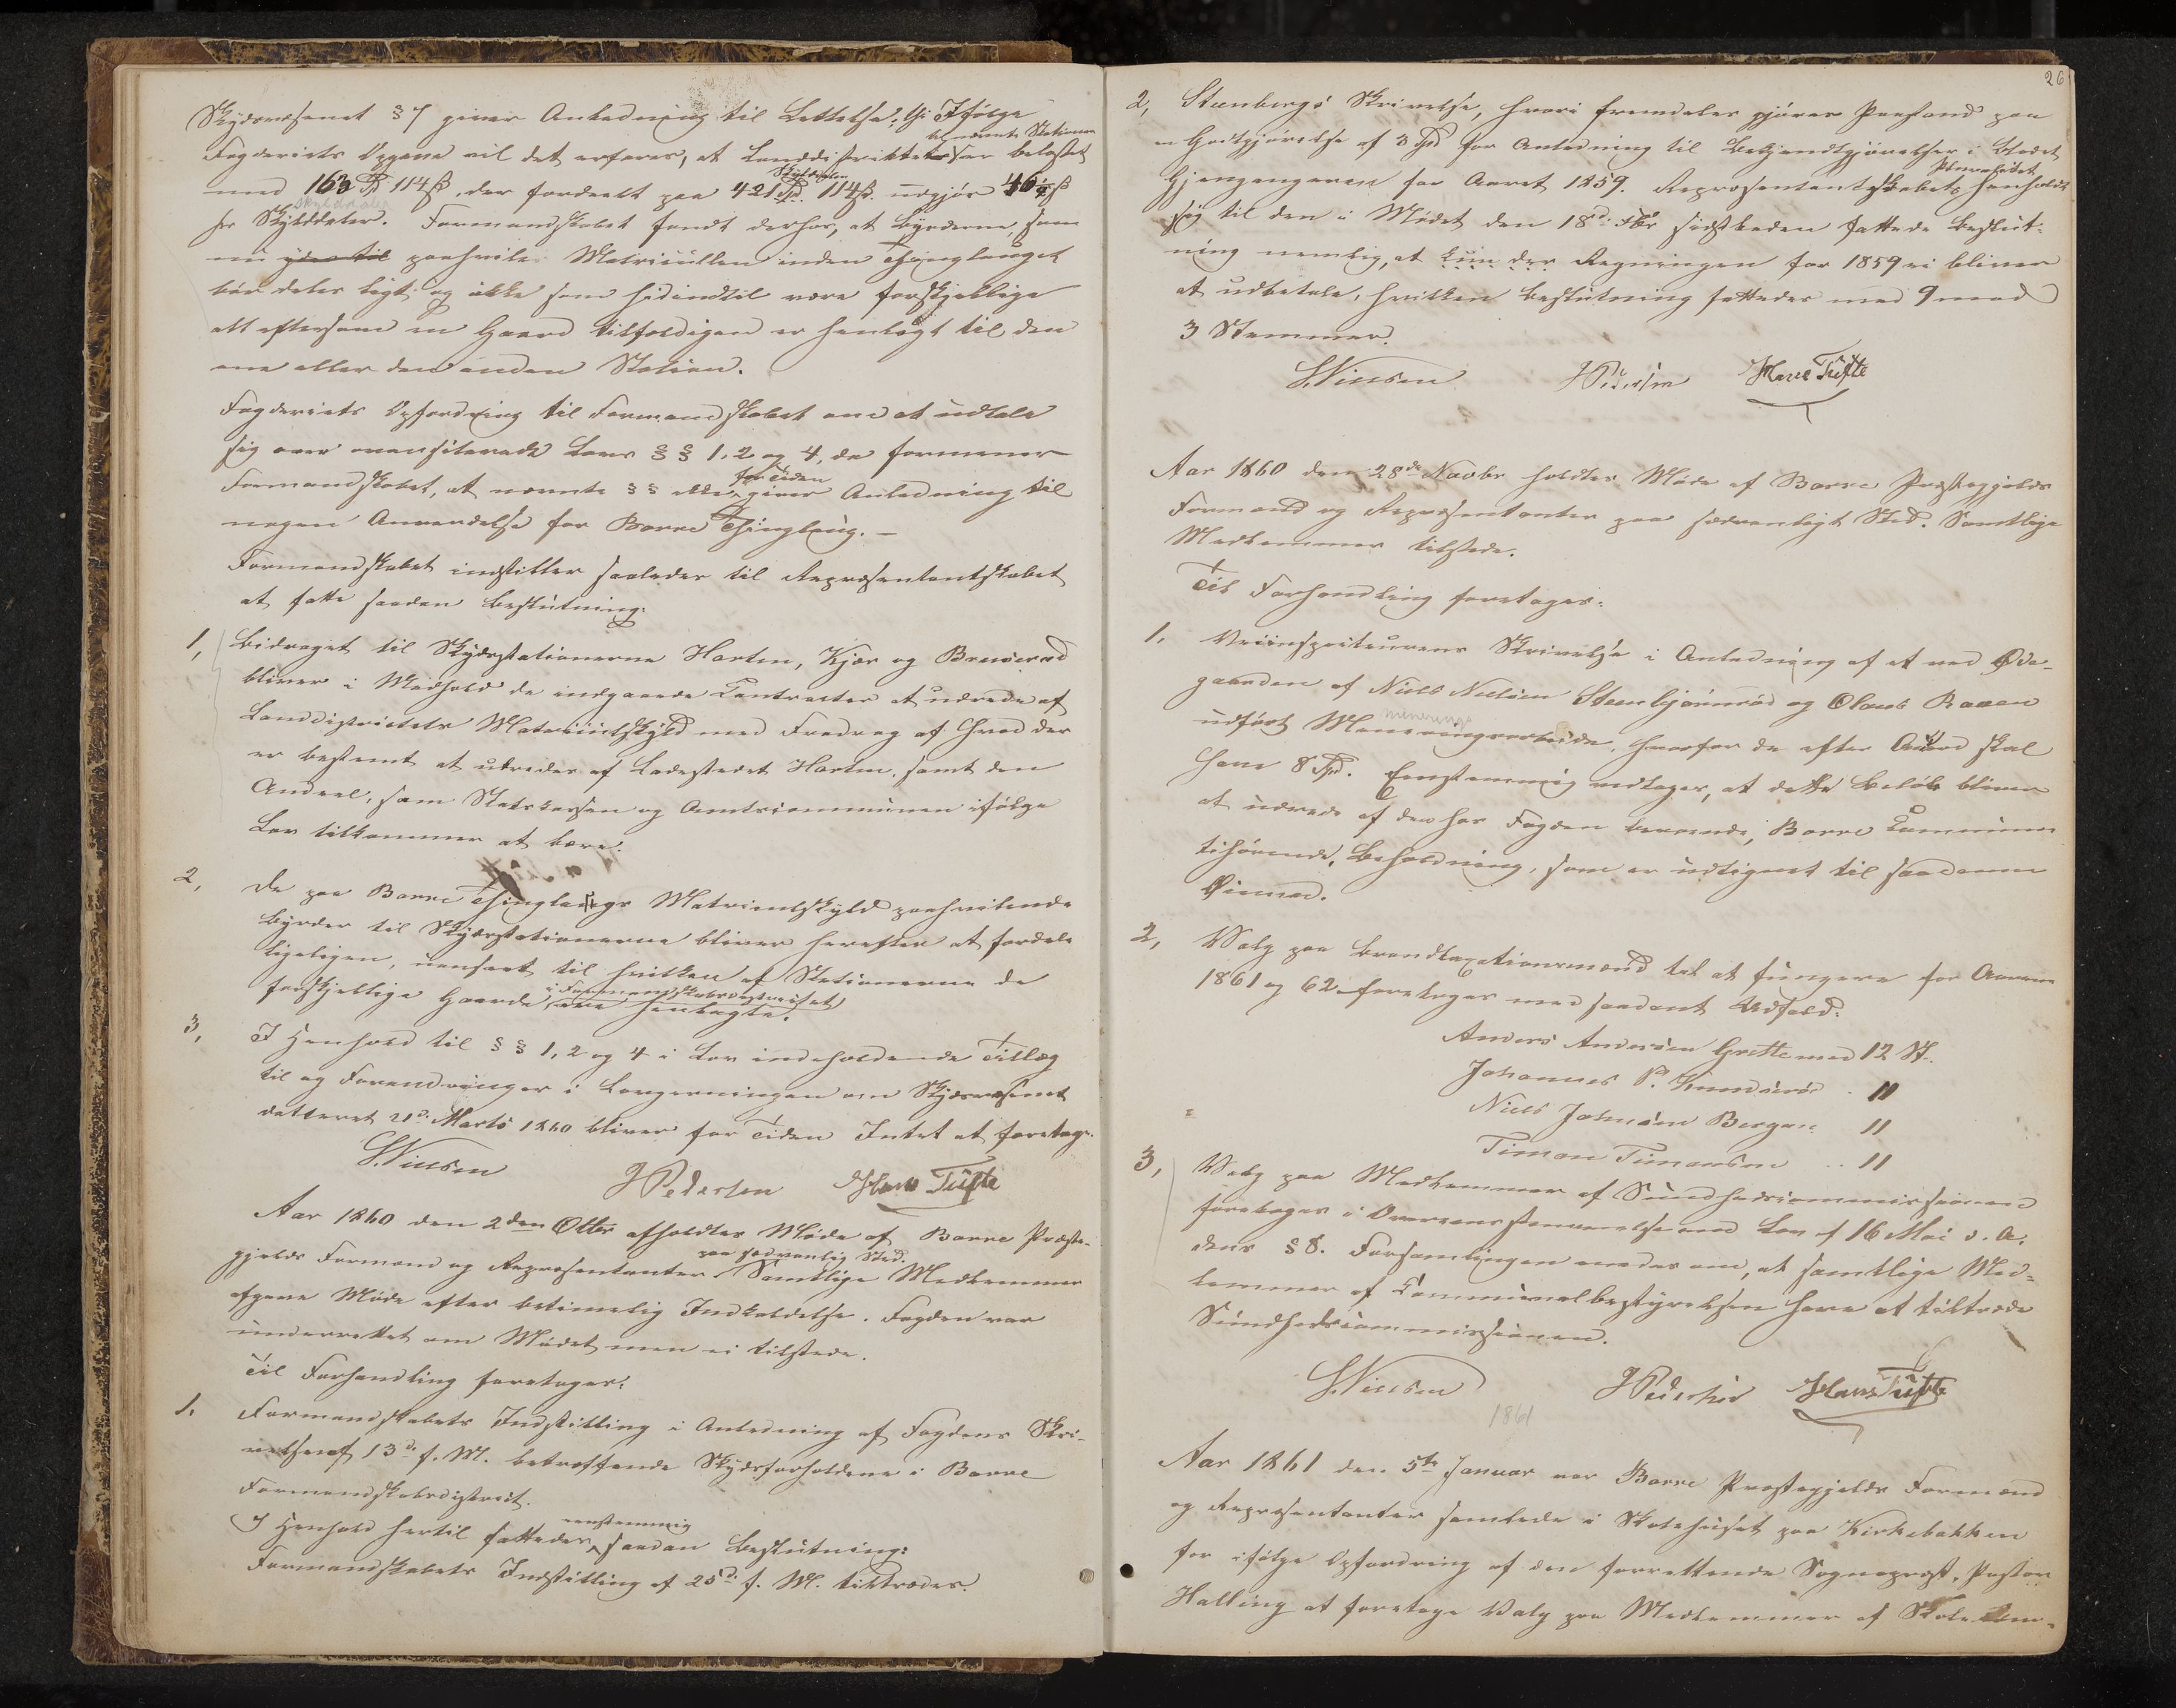 Skydsvæsenet § 7 giver Anledning til Lettelse. Ifølge
Fogderiets Opgave vil det erfares, at Landdistriktet for bemeldte Stationer er belastet
med 163 Spd 114 ß, der fordeelt paa 421 Skylddaler 114 ß udgjør 46½ ß
pr Skylddaler. Formandskabet fandt derhos, at Byrderne, som
nu paahviler Matriculen inden Thinglauget
bør deles ligt og ikke som hidindtil være forskjellige
alt eftersom en Gaard tilfældigen er henlagt til den
ene eller den anden Station.
Fogderiets Opfordring til Formandskabet om at udtale
sig over ovenciterede Lovs § § 1, 2 og 4, da formener
Formandskabet, at nævnte §§ ikke for Tiden giver Anledning til
nogen Anvendelse for Borre Thinglaug. –
Formandskabet indstiller saaledes til Repræsentantskabet
at fatte saadan Beslutning:
1, Bidraget til Skydsstationerne Horten, Kjær og Bruserød
bliver i Medhold de indgaaede Contracter at udrede af
Landdistrictets Matriculskyld med Fradrag af hvad der
er bestemt at udredes af Ladestedet Horten, samt den
Andeel, som Statskassen og Amtscommunen ifølge
Lov tilkommer at bære.
2, De paa Borre Thinglaugs Matriculskyld paahvilende
Byrder til Skydsstationerne bliver herefter at fordele
ligeligen, uanseet til hvilken af Stationerne de
forskjellige Gaarde i Formandskabsdistrictet ere henlagte.
3, I Henhold til § § 1, 2 og 4 i Lov indeholdende Tillæg
til og Forandringer i Lovgivningen om Skydsvæsenet
datteret 21d Marts 1860 bliver for Tiden Intet at foretage.
S. Nielsen J Pedersen Hans Tufte
Aar 1860 den 2den Otbr afholdtes Møde af Borre Præste-
gjelds Formænd og Repræsentanter paa sædvanlig Sted. Samtlige Medlemmer
afgave Møde efter betimelig Indkaldelse. Fogden var
underrettet om Mødet men ei tilstede.
Til Forhandling foretages:
1. Formandskabets Indstilling i Anledning af Fogdens Skri-
velse af 13d f. M. betræffende Skydsforholdene i Borre
Formandskabsdistrict.
I Henhold hertil fattedes eenstemmig saadan Beslutning:
Formandskabets Indstilling af 25d f. M. tiltrædes.
26
2, Steenbergs Skrivelse, hvori fremdeles gjøres Paastand paa
en Godtgjørelse af 3 Spd for Anledning til Bekjendtgjørelser i Bladet
Gjengangeren for Aaret 1859. Repræsentantskabets Pluralitet henholdt
sig til den i Mødet den 18d sidstleden fattede Beslut-
ning nemlig, at Regningen for 1859 ei bliver
at udbetale, hvilken Beslutning fattedes med 9 mod
3 Stemmer.
S. Nielsen J Pedersen Hans Tufte
Aar 1860 den 28de Novbr holdtes Møde af Borre Præstegjelds
Formænd og Repræsentanter paa sædvanligt Sted. Samtlige
Medlemmer tilstede.
Til Forhandling foretages:
1. Veiinspecteurens Skrivelse i Anledning af et ved Øde-
gaarden af Niels Nielsen Steenbjørnrød og Olaus Raaen
udført Mineringsarbeide, hvorfor de efter Accord skal
have 8 Spd. Eenstemmig vedtages, at dette Beløb bliver
at udrede af den hos Fogden beroende, Borre Commune
tilhørende, Beholdning, som er udlignet til saadanne
Øiemed.
2, Valg paa Brandtaxationsmænd til at fungere for Aarene
1861 og 62 foretages med saadant Udfald:
Anders Andersen Grette med 12 St.
Johannes P. . 11
Niels Johnsen Bergan 11
Timan Timansen .. 11
3, Valg paa Medlemmer af Sundhedscommissionen
foretoges i Overensstemmelse med Lov af 16 Mai d. A.
dens § 8. Forsamlingen enedes om, at samtlige Med-
lemmer af Communalbestyrelsen have at tiltræde
Sundhedscommissionen.
S. Nielsen J Pedersen Hans Tufte
1861
Aar 1861 den 5te Januar var Borre Præstegjelds Formænd
og Repræsentanter samlede i Skolehuset paa Kirkebakken
for ifølge Opfordring af den forrettende Sognepræst, Pastor
Halling at foretage Valg paa Medlemmer af Skolekom-